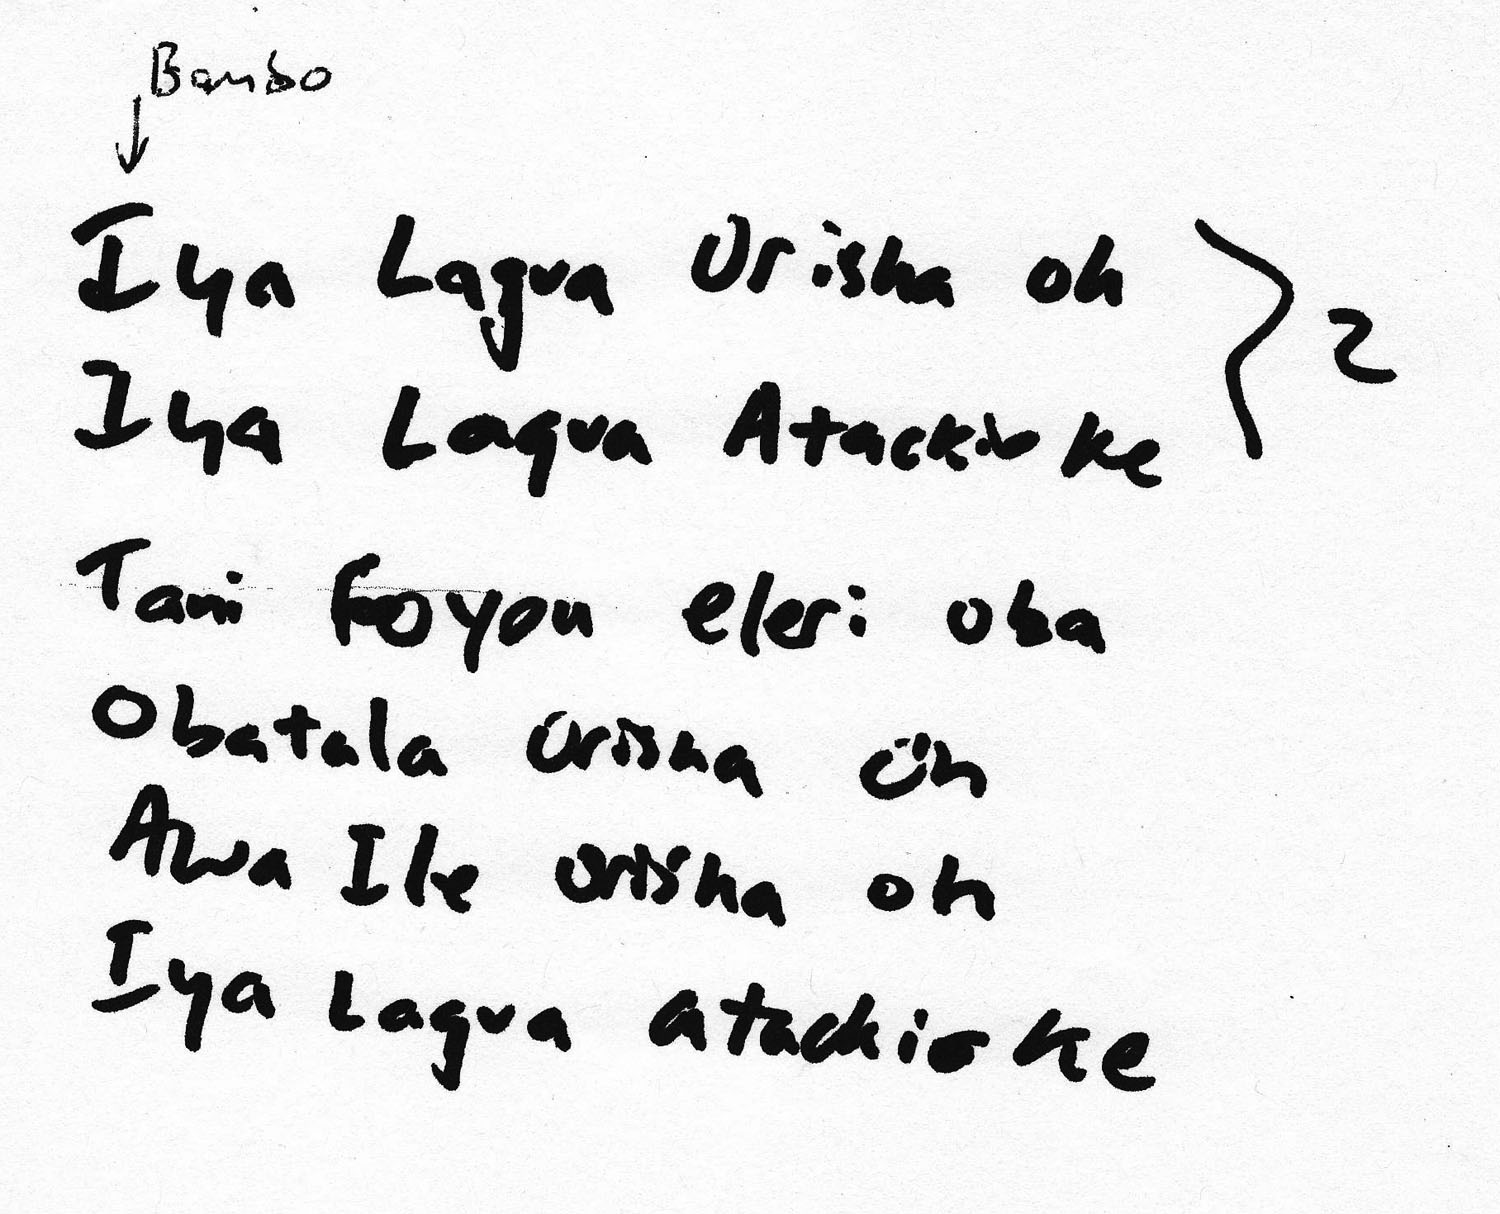 Bambo
Iya Lagva Orisha oh
Iya Lagva Atackio ke } 2
Tani foyou eleri oba
Obatala orisha oh
Awa Ile orisha oh
Iya Lagva atackio ke